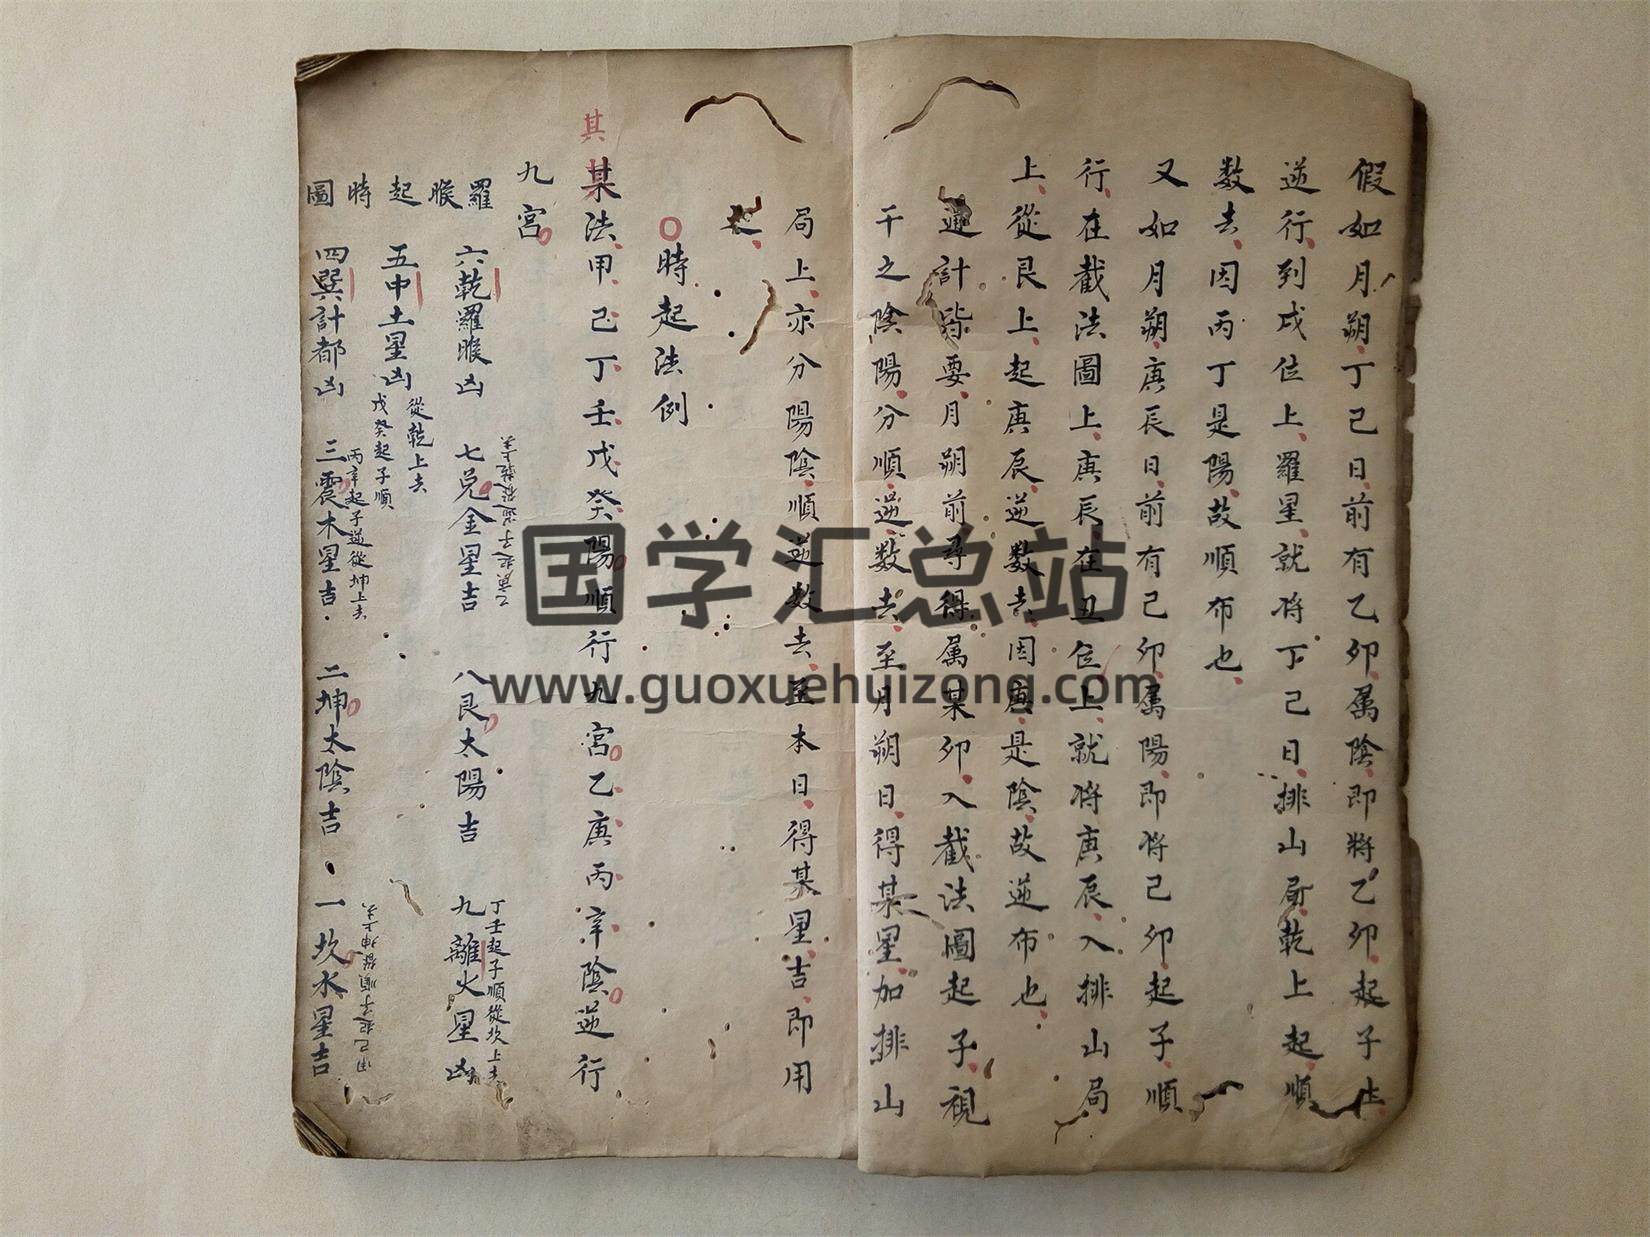 假如月朔丁己日前有乙卯属陰即將乙卯起子上
逆行到戍位上羅星就将丁己日排山局乾上起順
数去因丙丁是陽故順布也
又如月朔庚辰日前有己卯属陽即将己卯起子順
行在截法圖上庚辰在丑位上就将庚辰入排山局
上從艮上起庚辰逆数去因庚是陰故逆布也
通計皆要月朔前尋得属某卯入截法圖起子視
干之陰陽分順逆数去至月朔日得某星加排山
局上亦分陽陰順逆数去至本日得某星吉即用
之
時起法例
其
某法甲己丁壬戊癸陽順行九宮乙庚丙辛陰逆行
九宮
羅睺起時圖
六乾羅睺凶
七兌金星吉
乙庚起子逆從艮上去
八艮太陽吉
九離火星凶
丁壬起子順從坎上去
五中土星凶
從乾上去
戊癸起子順
四巽計都凶
三震木星吉
丙辛起子逆從坤上去
二坤太陰吉
一坎水星吉
甲己起子順從坤上去
国学汇总站
www.guoxuehuizong.com